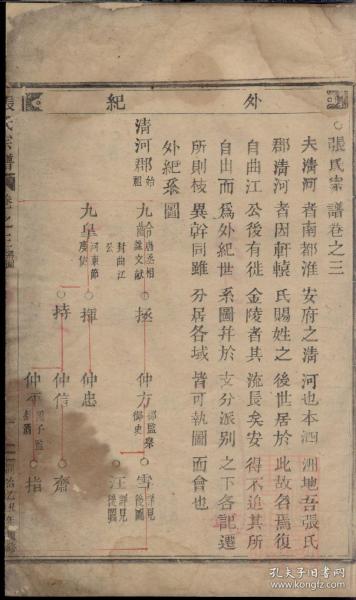 外紀
張氏宗譜卷之三
夫淸河者南都淮安府之淸河也本泗洲地吾張氏
郡淸河者因軒轅氏賜姓之後世居於此故名焉復
自曲江公後有徙金陵者其流長矣安得不追其所
自出而爲外紀世系圖幷於支分派別之下各記遷
所則枝異幹同雖分居各域皆可執圖而會也
外紀系圖
淸河郡始祖
九齡唐丞相諡文獻封曲江公
拯
仲方
雪詳見後圖
江詳見後圖
九皐
揮
仲忠
持
仲信
齋
仲
指
張氏宗譜
卷之三
孔夫子旧书网